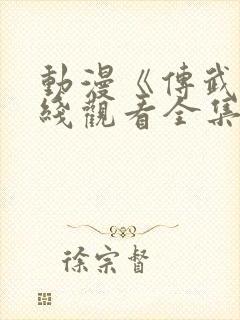 動漫《傳武
綫觀看全集
徐宗督